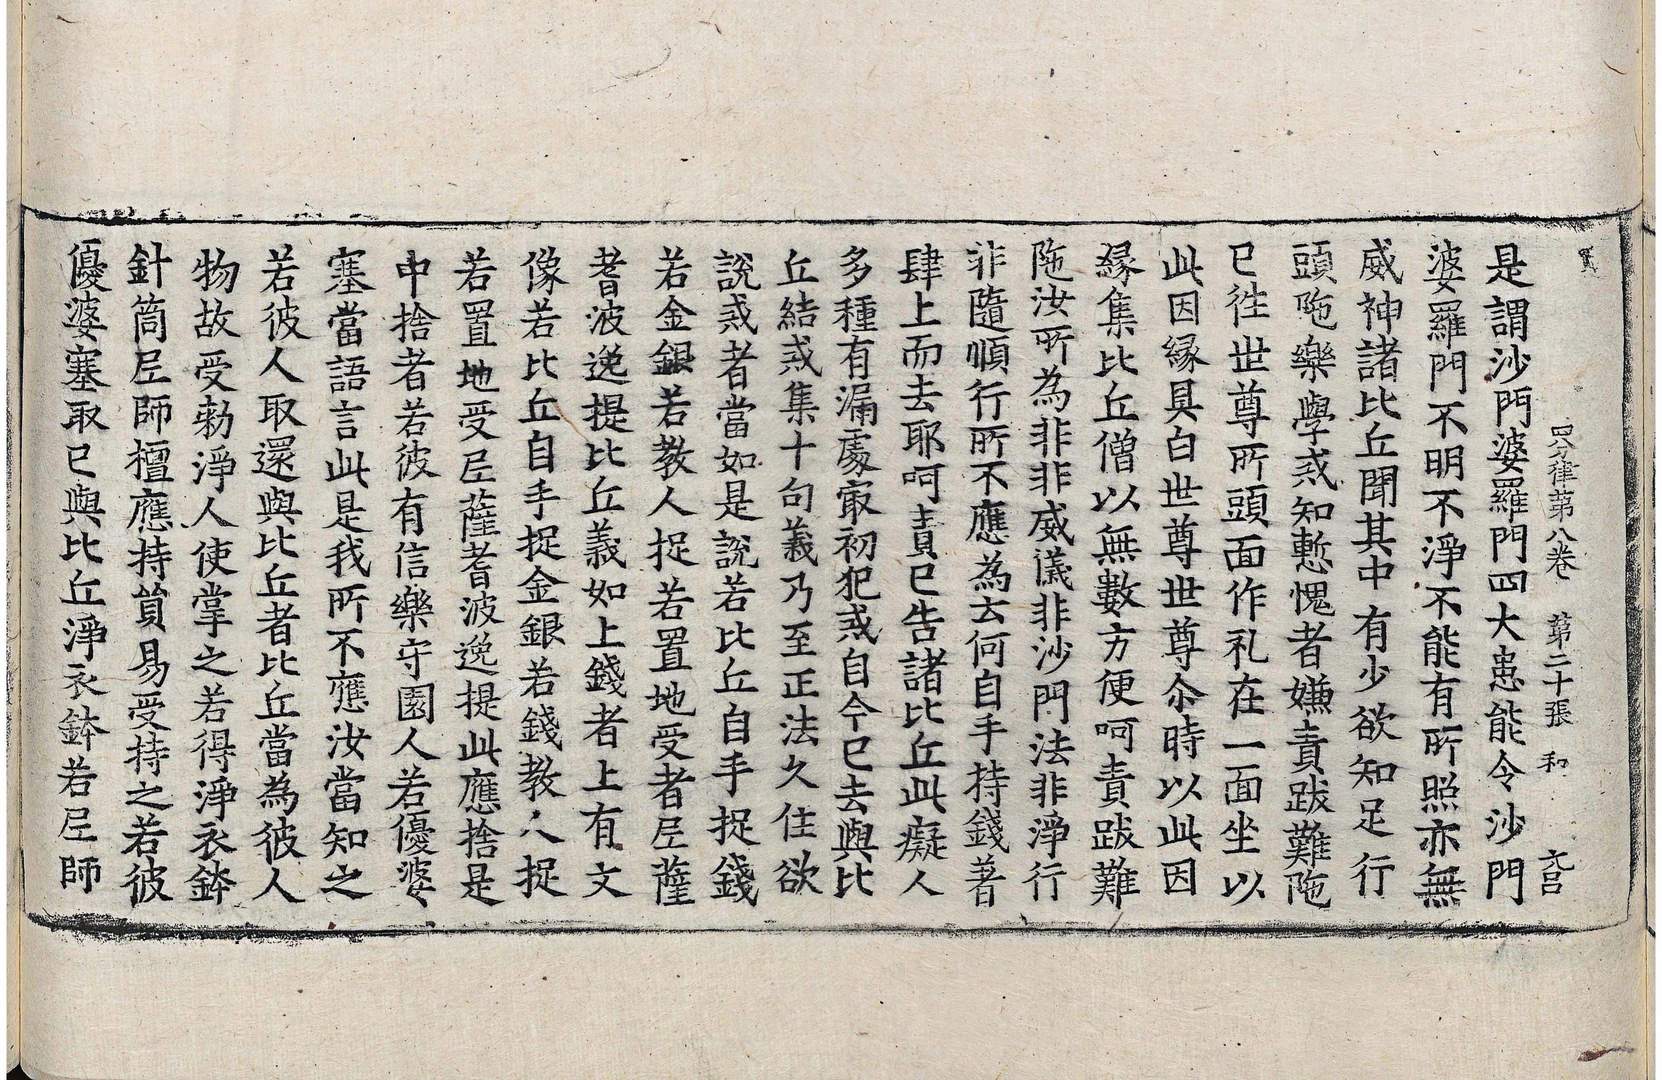 四分律第八卷 第二十張 和
是謂沙門婆羅門四大患能令沙門
婆羅門不明不淨不能有所照亦無
威神諸比丘聞其中有少欲知足行
頭陁樂學戒知慙愧者嫌責跋難陁
已往世尊所頭面作礼在一面坐以
此因緣具白世尊世尊尒時以此因
緣集比丘僧以無數方便呵責跋難
陁汝所為非非威儀非沙門法非淨行
非隨順行所不應為云何自手持錢著
肆上而去耶呵責已告諸比丘此癡人
多種有漏處㝡初犯戒自今已去與比
丘結戒集十句義乃至正法久住欲
說戒者當如是說若比丘自手捉錢
若金銀若教人捉若置地受者尼薩
耆波逸提比丘義如上錢者上有文
像若比丘自手捉金銀若錢教人捉
若置地受尼薩耆波逸提此應捨是
中捨者若彼有信樂守園人若優婆
塞當語言此是我所不應汝當知之
若彼人取還與比丘者比丘當為彼人
物故受勑淨人使掌之若得淨衣鉢
針筒尼師檀應持貿易受持之若彼
優婆塞取已與比丘淨衣鉢若尼師